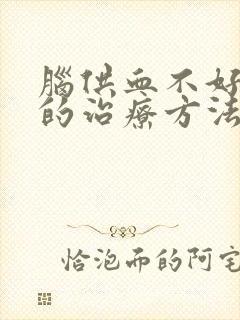 腦供血不好
的治療方法
恰泡而的阿宅